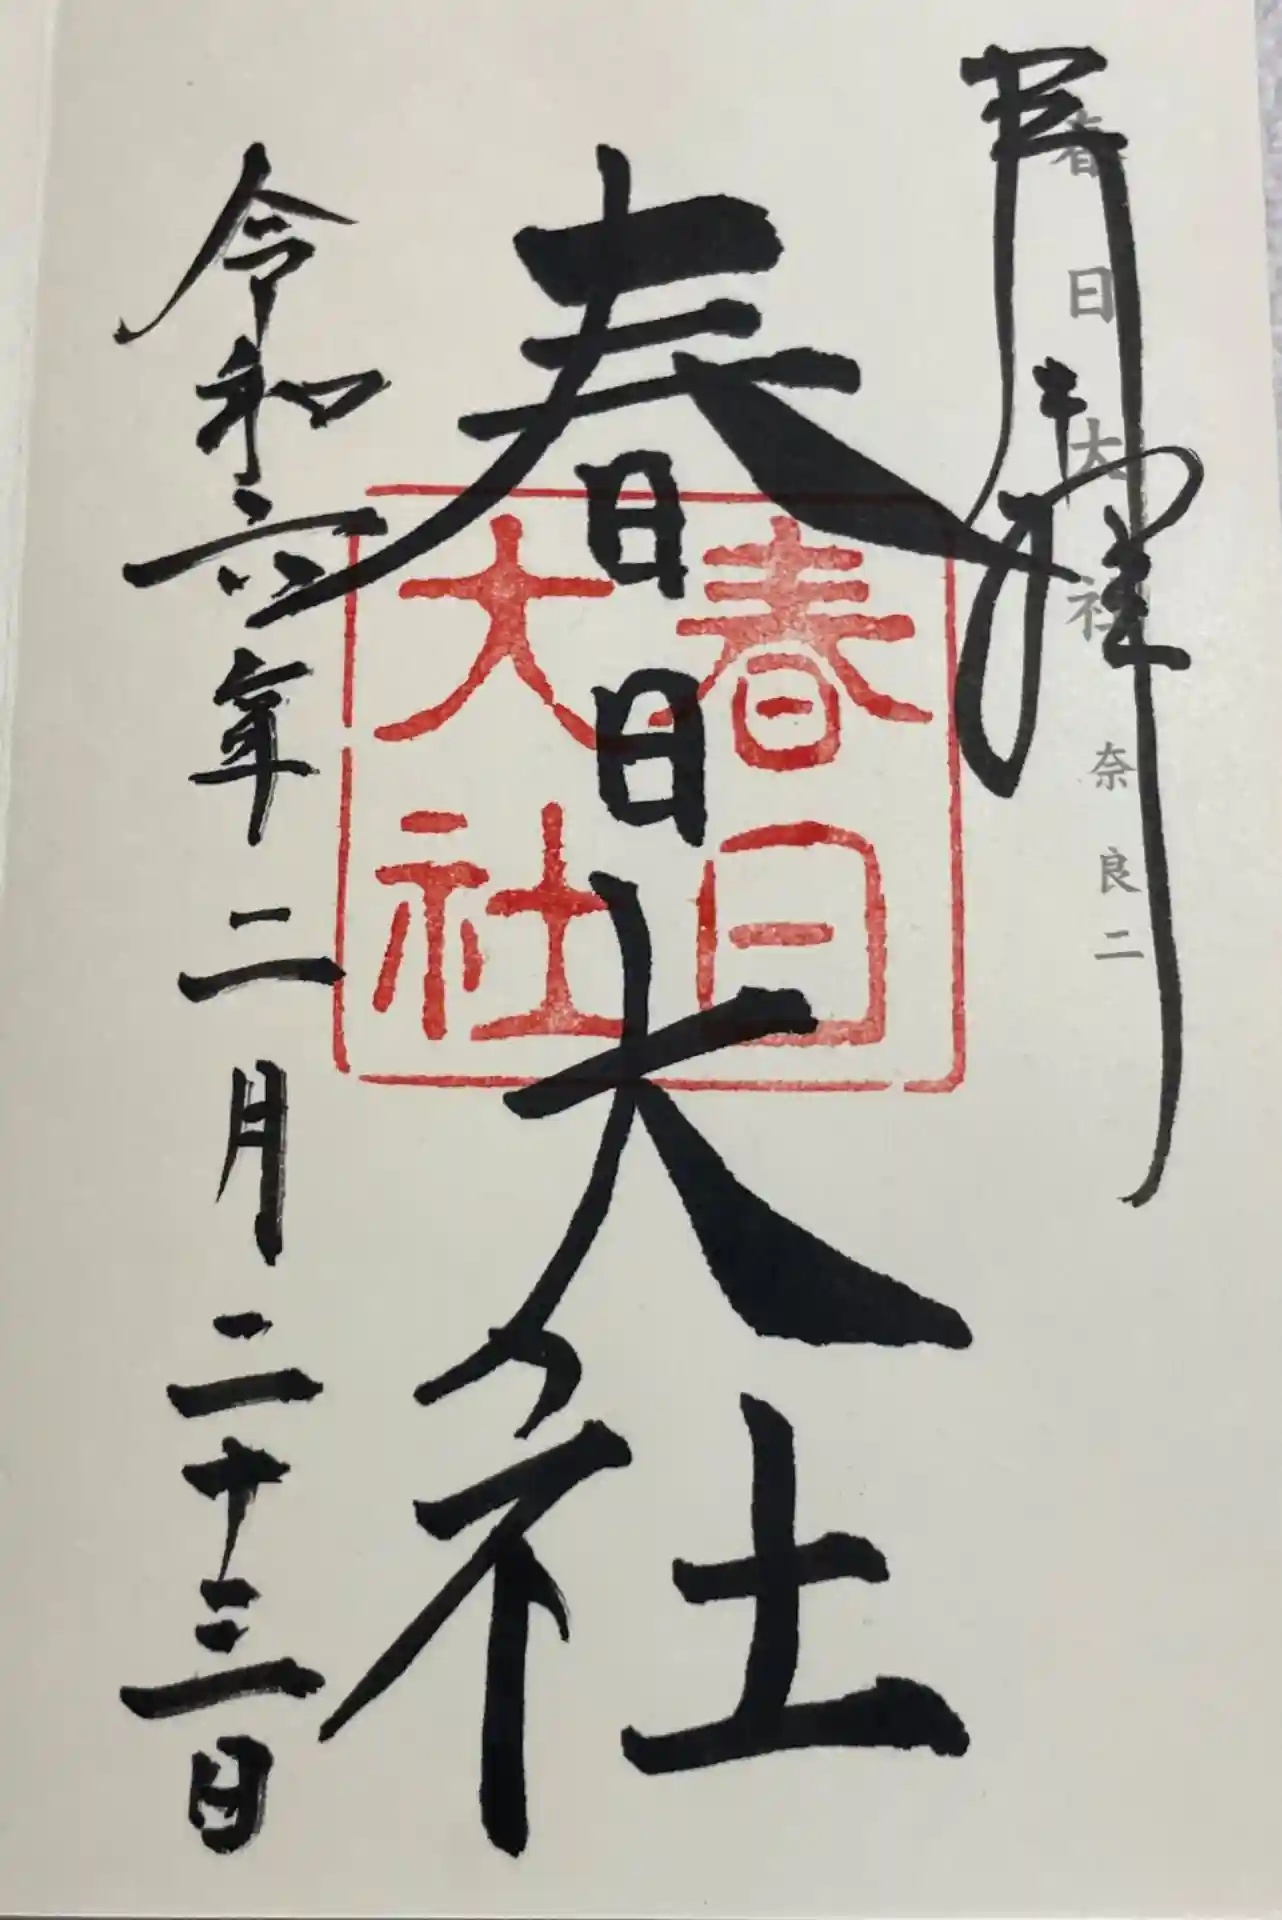 奉拝
春日大社
奈良二
春日大社
春日大社
令和六年二月二十三日